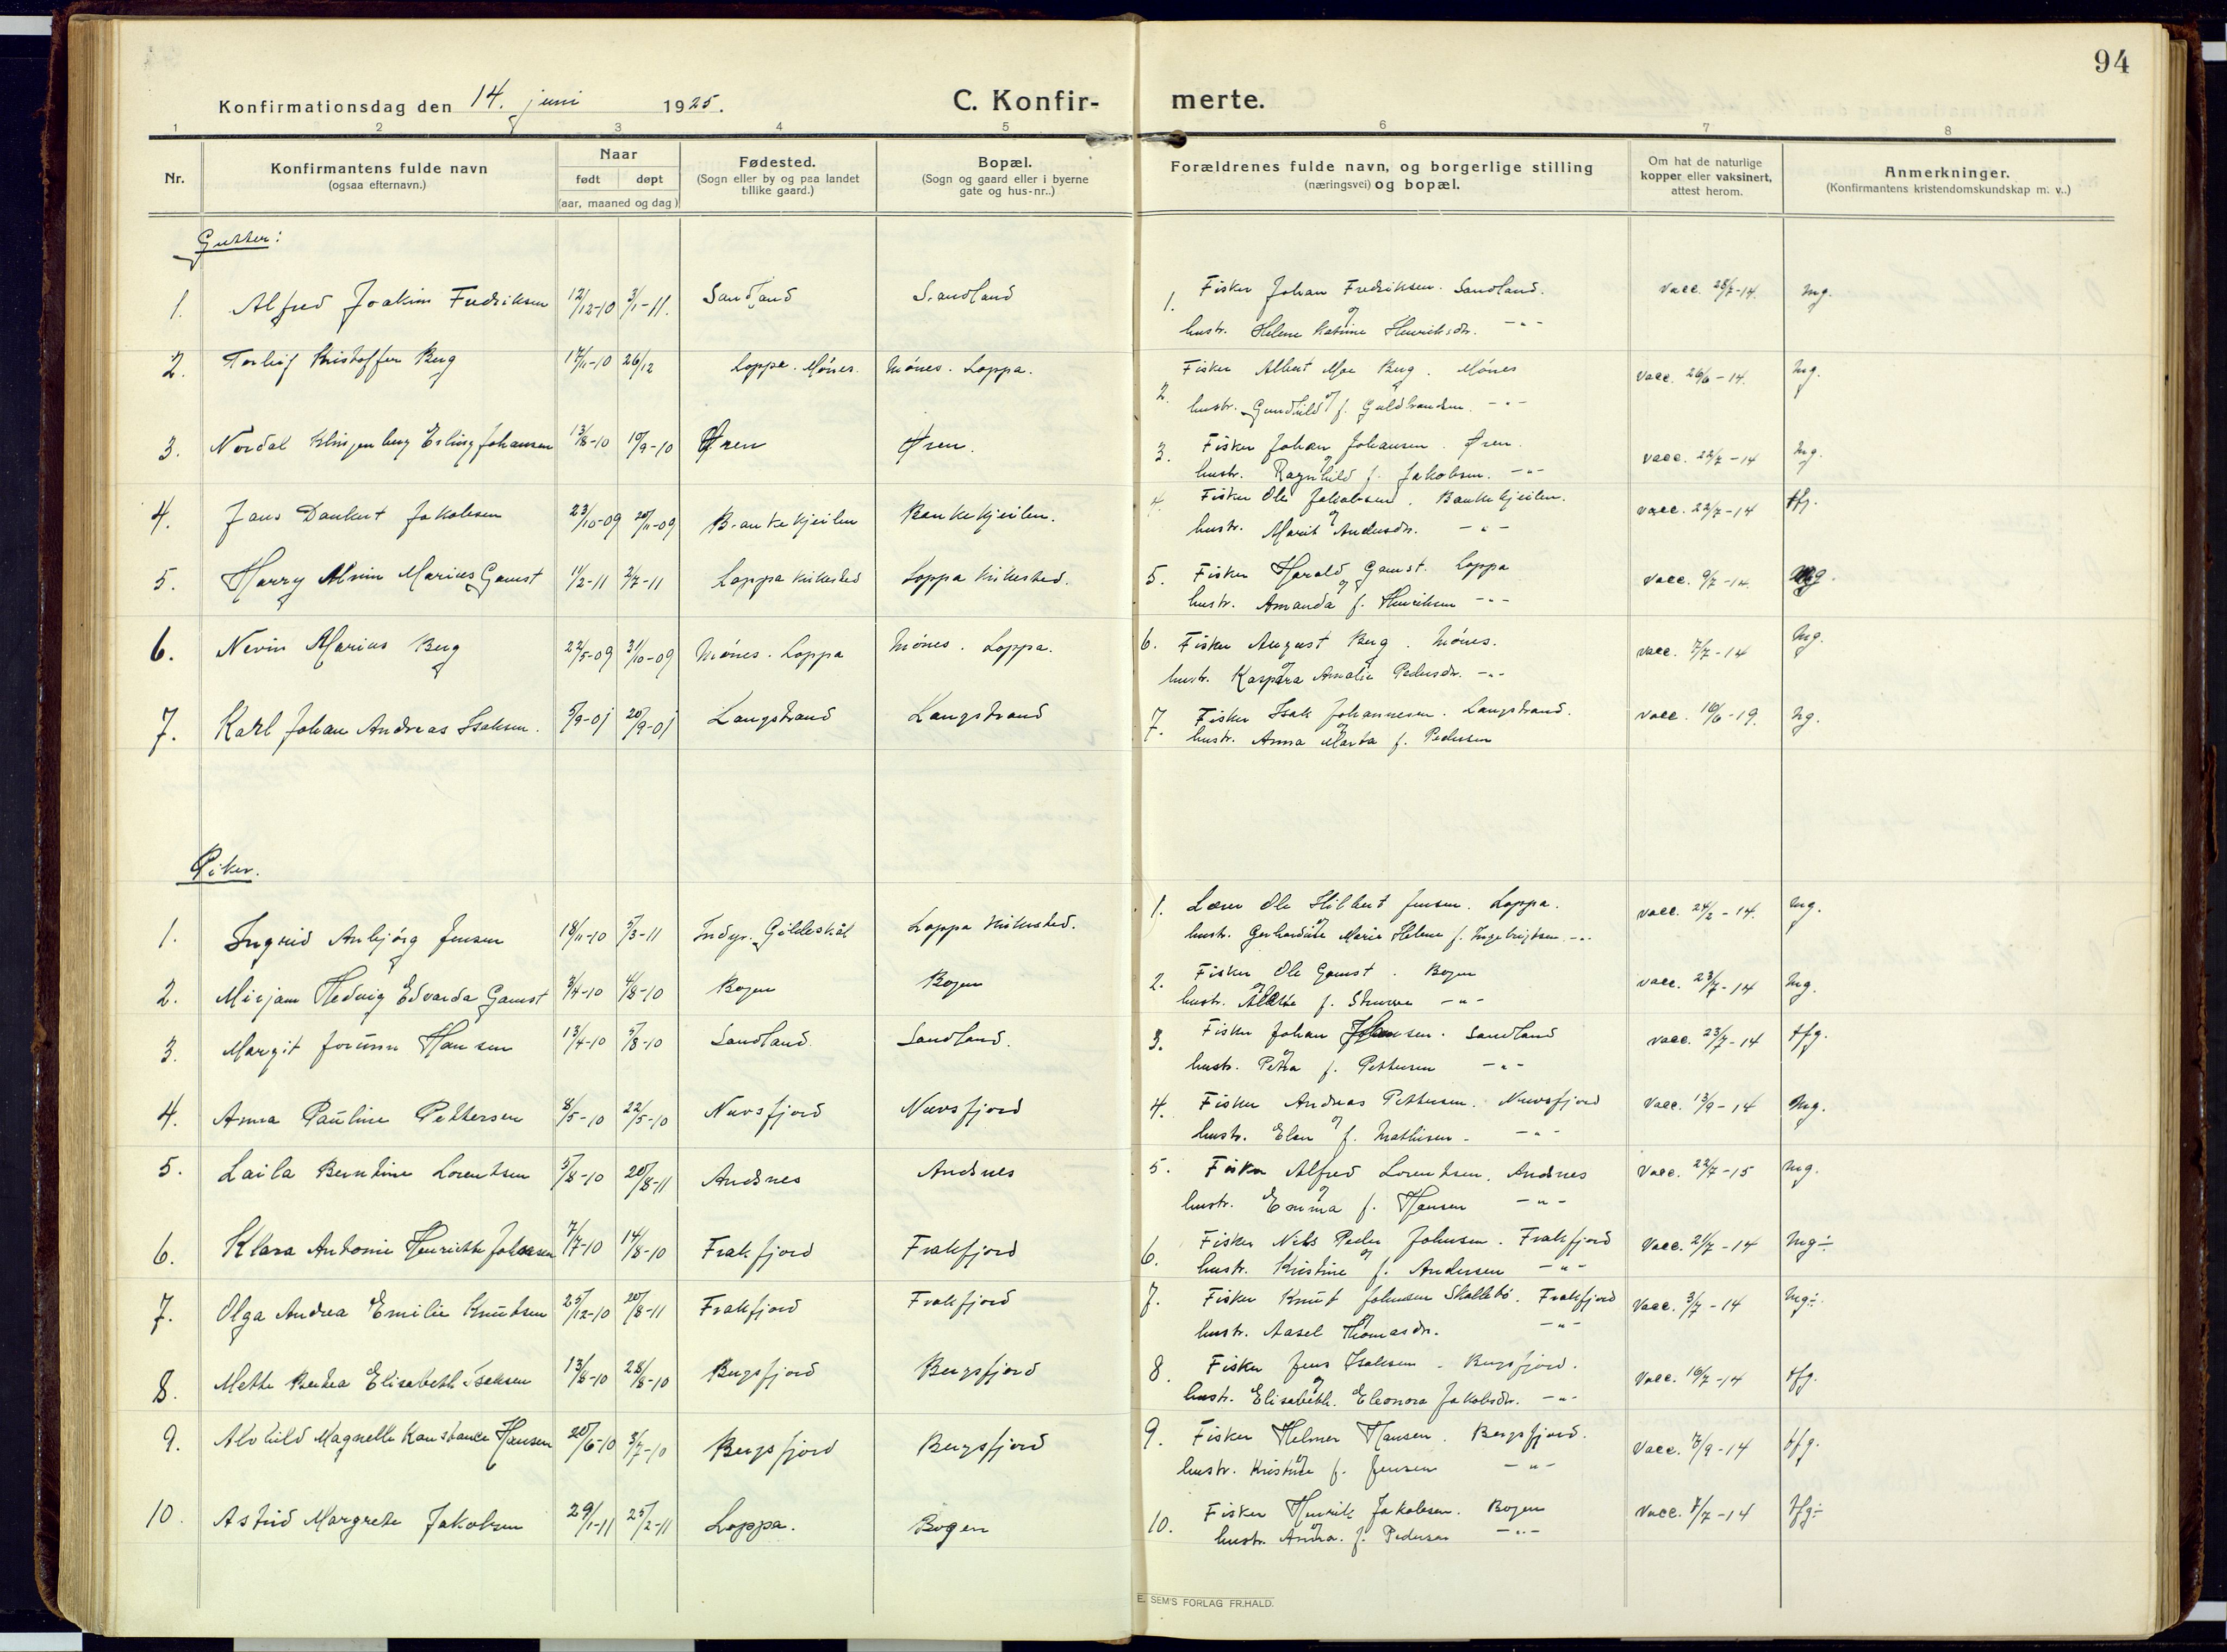 94
Konfirmationsdag den 14. juni 1925. C. Konfir- merte.
1 2 3 4 5 6 7 8
Nr.
Konfirmantens fulde navn
(ogsaa efternavn.)
Naar
født døpt
(aar, maaned og dag)
Fødested.
(Sogn eller by og paa landet
tillike gaard.)
Bopæl.
(Sogn og gaard eller i byerne
gate og hus-nr..)
Forældrenes fulde navn, og borgerlige stilling
(næringsvei) og bopæl.
Om hat de naturlige
kopper eller vaksinert,
attest herom.
Anmerkninger.
(Konfirmantens kristendomskundskap m. v..)
Gutter:
1. Alfred Joakim Fredriksen 12/12-10 3/1-11. Sandland Sandland 1. Fisker Johan Fredriksen. Sandland. Vacc. 28/7-14. Mg.
og
hustr. Helene Katrine Henriksdr. -"-
2. Torleif Kristoffer Berg 17/11-10 26/12 Loppa. Mönes. Mönes. Loppa. 2. Fisker Albert Moe Berg. Mönes Vacc. 26/6-14. Mg.
og
hustr. Gundhild f. Guldbrandsen. -"-
3. Nordal Klingenberg Erling Johansen 13/8-10 10/9-10 Øren Øren. 3. Fisker Johan Johansen. Øren. Vacc. 22/7-14 Mg.
hustr. Ragnhild f. Jakobsen. -"-
4. Jens Dankert Jakobsen 23/10-09 20/11-09 Bankekjeilen Bankekjeilen. 4. Fisker Ole Jakobsen. Bankekjeilen. Vacc. 22/7-14 tfg.
og
hustr. Marit Andersdr. -"-
5. Harry Almin Marius Gamst 11/2-11 2/7-11 Loppa kirkested Loppa kirkested. 5. Fisker Harald Gamst. Loppa Vacc. 9/7-14 Mg.
og
hustr. Amanda f. Henriksen -"-
6. Nevin Marius Berg 22/5-09 31/10-09 Mönes. Loppa Mönes. Loppa. 6. Fisker August Berg. Mönes. Vacc. 7/7-14 Mg.
og
hustr. Kaspara Amalie Pedersdr. -"-
7. Karl Johan Andreas Isaksen. 5/9-01 20/9-01 Langstrand Langstrand 7. Fisker Isak Johannesen. Langstrand. Vacc. 16/6-19. Ng.
og
hustr. Anna Marta f. Pedersen
Piker.
1. Ingrid Anbjörg Jensen 18/11-10 5/3-11 Indyr. Gildeskål Loppa kirkested. 1. Lærer Ole Hilbert Jensen. Loppa. Vacc. 24/2-14. Mg.
og
hustr. Gerhardine Marie Helene f. Ingebrigtsen -"-
2. Mirjam Hedvig Edvarda Gamst 3/4-10 4/8-10 Bogen Bogen 2. Fisker Ole Gamst. Bogen Vacc. 23/7-14 Mg.
og
hustr. f. -"-
3. Margit Jorunn Hansen 13/4-10 5/8-10 Sandland. Sandland. 3. Fisker Johan Sandland Vacc. 23/7-14 tfg.
og
hustr. Petra f. Pettersen -"-
4. Anna Pauline Pettersen 8/5-10 22/5-10 Nuvsfjord Nuvsfjord 4. Fisker Andreas Pettersen. Nuvsfjord Vacc. 13/9-14 Mg.
og
hustr. Elen f. Mathisen. -"-
5. Laila Berntine Lorentsen 5/8-10 20/8-11 Andsnes Andsnes 5. Fisker Alfred Lorentsen. Andsnes Vacc. 22/7-15 Mg.
og
hustr. Emma f. Hansen -"-
6. Klara Antonie Henriette Johnsen 7/7-10 14/8-10 Frakfjord Frakfjord 6. Fisker Nils Peder Johnsen. Frakfjord Vacc. 21/7-14 Mg÷.
og
hustr. Kristine f. Andersen -"-
7. Olga Andrea Emilie Knutsen 25/12-10 20/8-11 Frakfjord Frakfjord 7. Fisker Knut Johnsen Skallebö. Frakfjord Vacc. 3/7-14 Mg÷.
og
hustr. Aasel Thomasdr. -"-
8. Mette Berthea Elisabeth Isaksen 13/8-10 28/8-10 Bergsfjord Bergsfjord 8. Fisker Jens Isaksen. Bergsfjord. Vacc. 16/7-14 tfg.
og
hustr. Elisabeth. Eleonora Jakobsdr. -"-
9. Alvhild Magnelle Konstance Hansen 20/6-10 3/7-10 Bergsfjord Bergsfjord 9. Fisker Helmer Hansen. Bergsfjord. Vacc. 8/9-14 tfg.
og
hustr. Kristine f. Jensen -"-
10. Astrid Margrete Jakobsen 29/1-11 25/2-11 Loppa. Bogen 10. Fisker Henrik Jakobsen. Bogen Vacc. 8/7-14 tfg÷
og
hustr. Andrea. f. Pedersen -"-
E. SEM'S FORLAG FR.HALD.